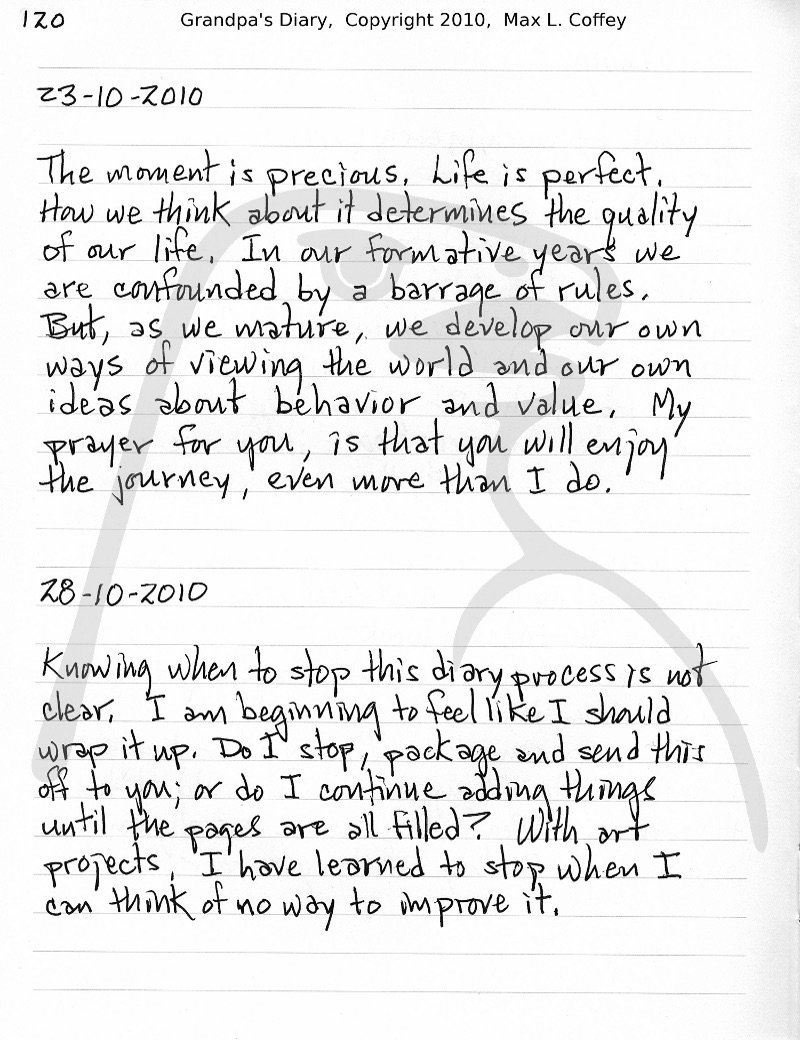 120
Grandpa's Diary, Copyright 2010, Max L. Coffey
23-10-2010
The moment is precious. Life is perfect.
How we think about it determines the quality
of our life. In our formative years we
are confounded by a barrage of rules.
But, as we mature, we develop our own
ways of viewing the world and our own
ideas about behavior and value. My
prayer for you, is that you will enjoy
the journey, even more than I do.
28-10-2010
Knowing when to stop this diary process is not
clear. I am beginning to feel like I should
wrap it up. Do I stop, package and send this
off to you; or do I continue adding things
until the pages are all filled? With art
projects, I have learned to stop when I
can think of no way to improve it.